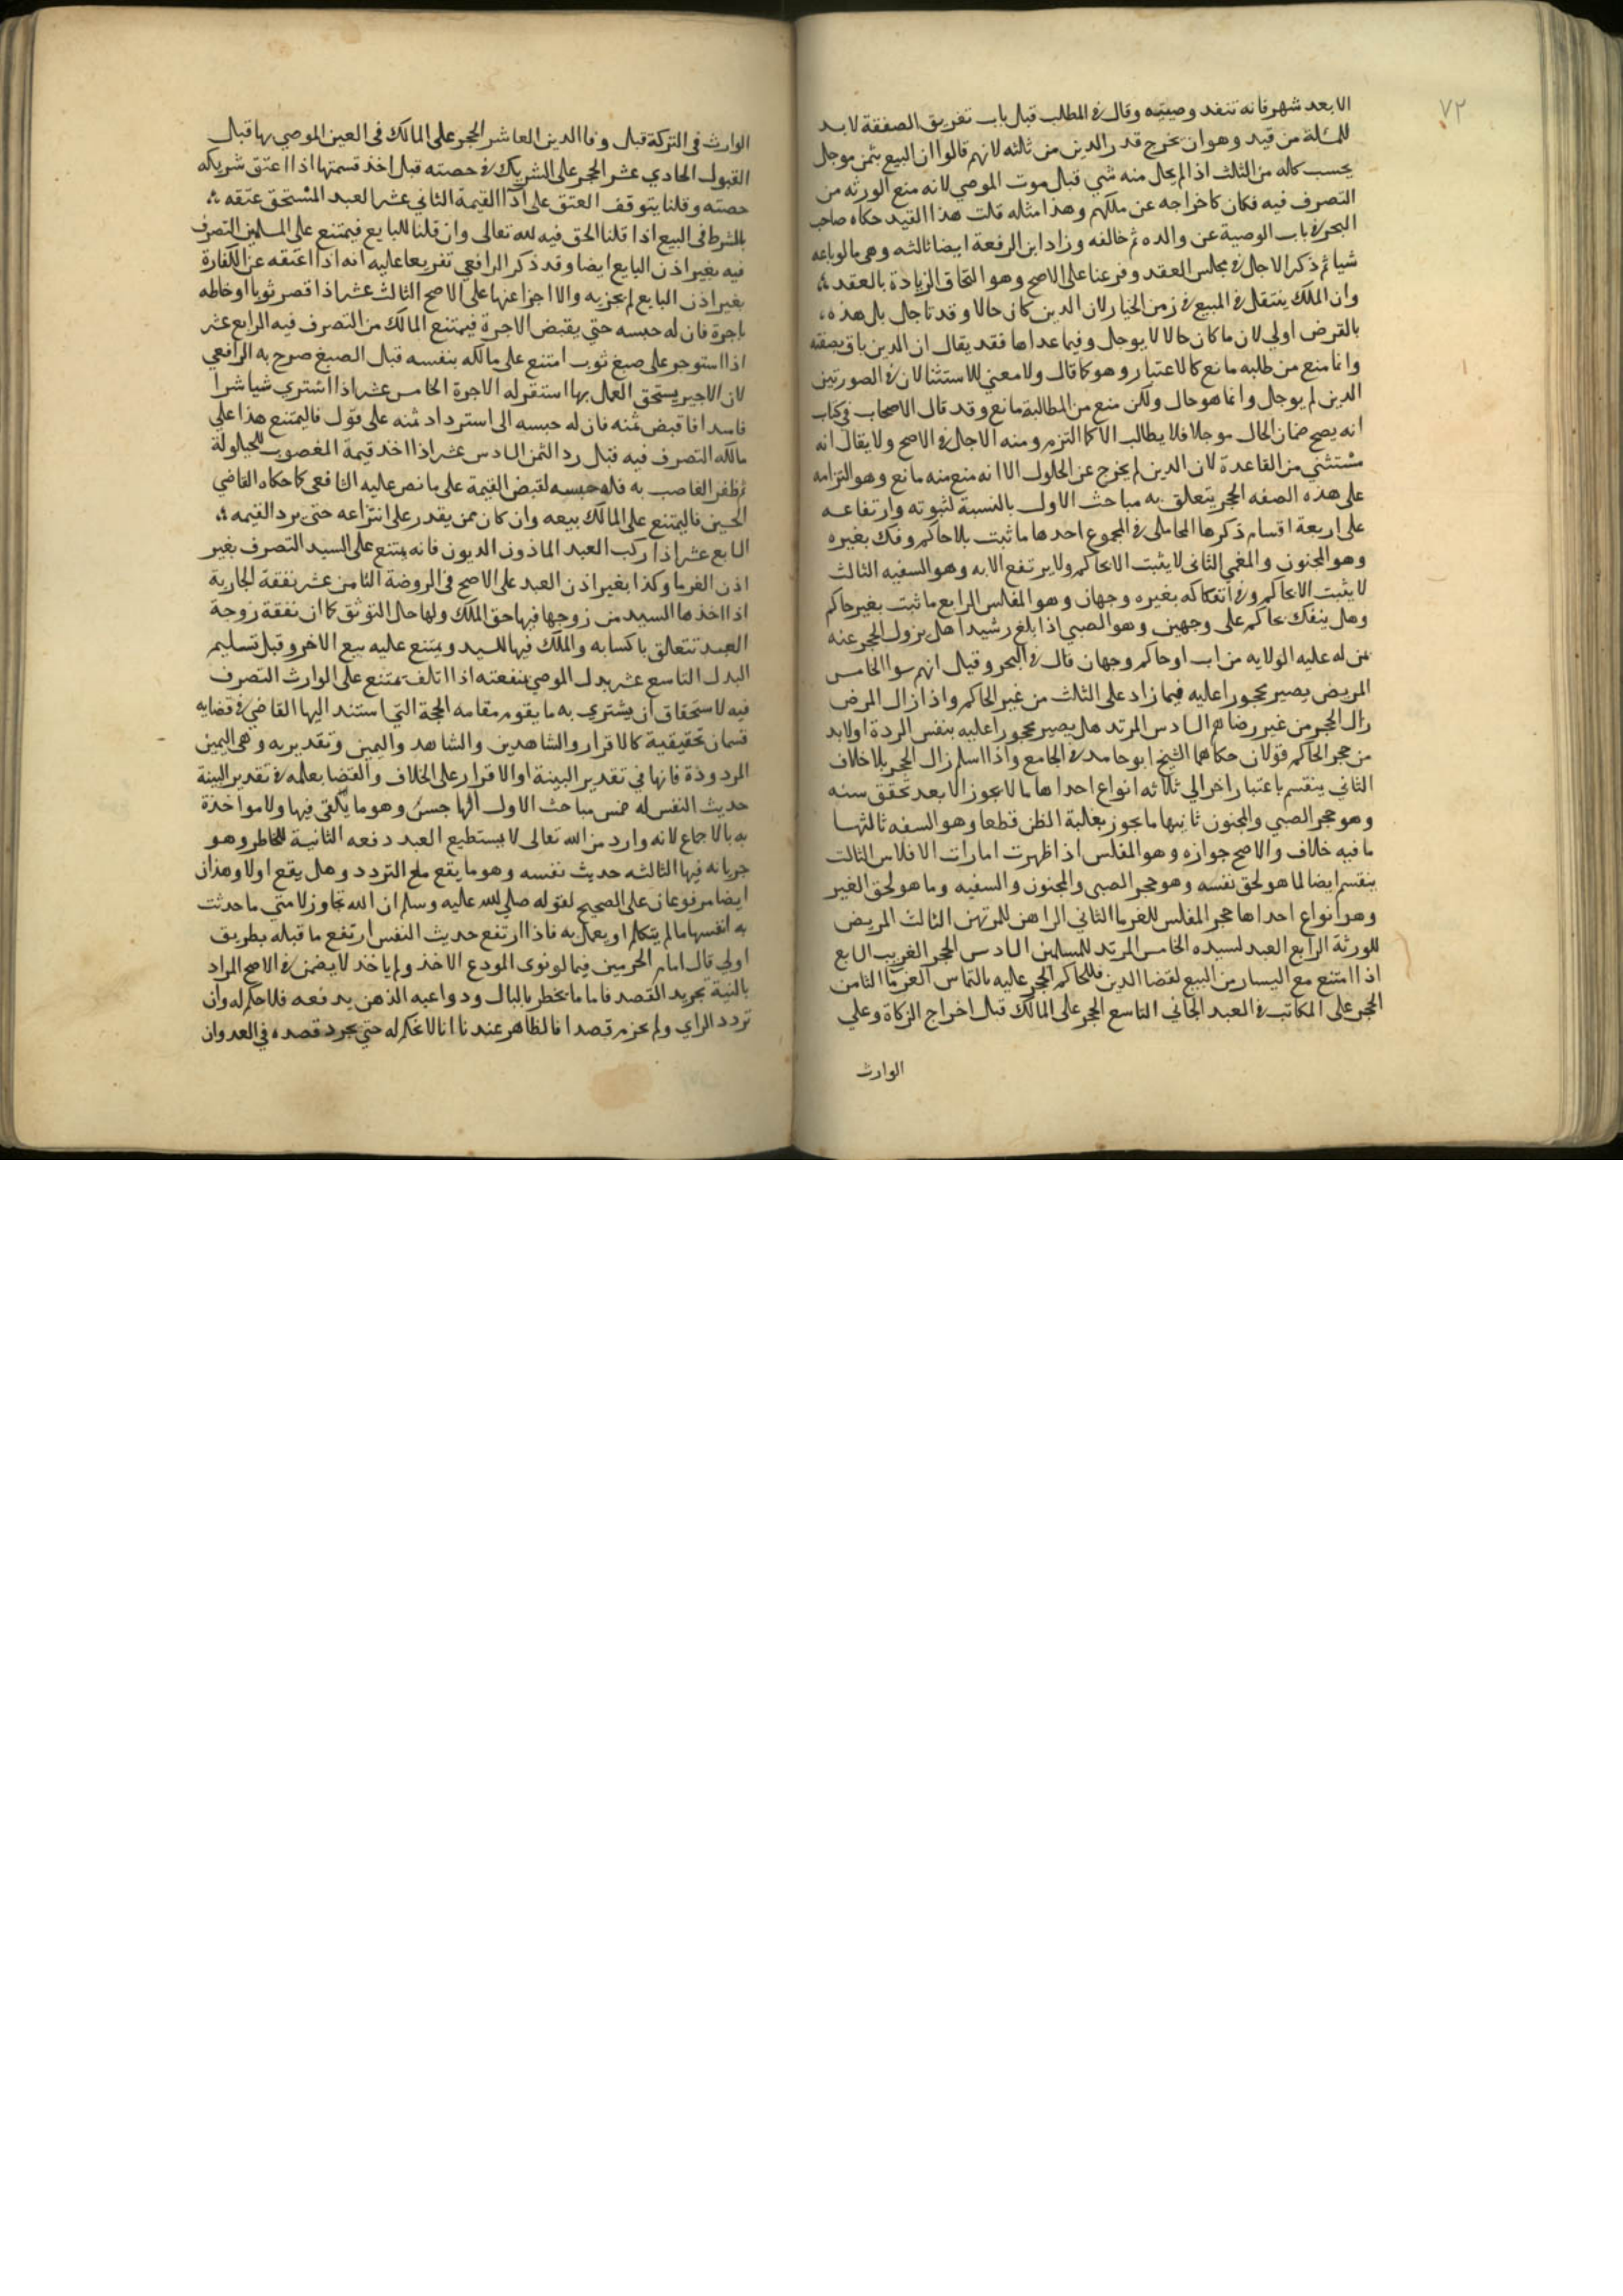 ٧٢
الا بعد شهر فانه تنفد وصيته وقال في المطلب قبل باب تفريق الصفقة لا بد
للمسئلة من قيد وهو ان يخرج قدر الدين من ثالثه لانهم قالوا ان البيع بثمن موجل
يحسب كاله من الثلث اذا لم يحل منه شي قبل موت الموصي لانه منع الورثه من
التصرف فيه فكان كاخراجه عن ملكهم وهذا مثاله قلت هذا القيد حكاه صاحب
البحر في باب الوصية عن والده ثم خالفه وزاد ابن الرفعة ايضا ثالثه وهي ما لو باعه
شيا ثم ذكر الاجل في مجلس العقد وفرعنا على الاصح وهو التحاق الزيادة بالعقد
وان الملك ينتقل في المبيع في زمن الخيار لان الدين كان حالا وقد تاجل بل هذه
بالقرض اولي لان ما كان حالا لا يوجل وفيما عداها فقد يقال ان الدين باق بصفته
وانما منع من طلبه مانع كالاعتبار وهو كما قال ولا معني للاستثنا لان في الصورتين
الدين لم يوجل وانما هو حال ولكن منع من المطالبة مانع وقد قال الاصحاب في كتاب
انه يصح ضمان الحال موجلا فلا يطالب الا كما التزم ومنه الاجل في الاصح ولا يقال انه
مستثني من القاعدة لان الدين لم يخرج عن الحلول الا انه منع منه مانع وهو التزامه
على هذه الصفه الحجر يتعلق به مباحث الاول بالنسبة لثبوته وارتفاعه
على اربعة اقسام ذكرها المحاملي في المجموع احدها ما ثبت بلا حاكم وفك بغيره
وهو المجنون والمغمي الثاني لا يثبت الا بحاكم ولا يرتفع الا به وهو السفيه الثالث
لا يثبت الا بحاكم وفي انفكاكه بغيره وجهان وهو المفلس الرابع ما ثبت بغير حاكم
وهل ينفك بحاكم على وجهين وهو الصبي اذا بلغ رشيدا هل يزول الحجر عنه
من له عليه الولايه من اب او حاكم وجهان قال في البحر وقيل انهم سوا الخامس
المريض يصير محجورا عليه فيما زاد على الثلث من غير الحاكم واذا زال المرض
زال الحجر من غير رضاهم السادس المرتد هل يصير محجورا عليه بنفس الردة او لا بد
من حجر الحاكم قولان حكاهما الشيخ ابو حامد في الجامع واذا اسلم زال الحجر بلا خلاف
الثاني ينقسم باعتبار اخر الي ثلاثه انواع احداها ما لا يجوز الا بعد تحقق سببه
وهو حجر الصبي والمجنون ثانيها ما يجوز بغلبة الظن قطعا وهو السفه ثالثها
ما فيه خلاف والاصح جوازه وهو المفلس اذا ظهرت امارات الافلاس الثالث
ينقسم ايضا لما هو لحق نفسه وهو حجر الصبي والمجنون والسفيه وما هو لحق الغير
وهو انواع احداها حجر المفلس للغرما الثاني الراهن للمرتهن الثالث المريض
للورثة الرابع العبد لسيده الخامس المرتد للمسلمين السادس الحجر الغريب السابع
اذا امتنع مع اليسار من البيع لقضا الدين فللحاكم الحجر عليه بالتماس الغرما الثامن
الحجر على المكاتب في العبد الجاني التاسع الحجر على المالك قبل اخراج الزكاة وعلي
الوارث
الوارث في التركة قبل وفا الدين العاشر الحجر على المالك في العين الموصي بها قبل
القبول الحادي عشر الحجر على الشريك في حصته قبل اخذ قسمتها اذا اعتق شريكه
حصته وقلنا يتوقف العتق على ادا القيمة الثاني عشر العبد المستحق عتقه
بالشرط في البيع اذا قلنا الحق فيه لله تعالى وان قلنا للبايع فيمتنع على المسلمين التصرف
فيه بغير اذن البايع ايضا وقد ذكر الرافعي تفريعا عليه انه اذا اعتقه عن الكفارة
بغير اذن البايع لم يجزيه والا اجزا عنها على الاصح الثالث عشر اذا قصر ثوبا او خاطه
باجرة فان له حبسه حتي يقبض الاجرة فيمتنع المالك من التصرف فيه الرابع عشر
اذا استوجر على صبغ ثوب امتنع على مالكه بنفسه قبل الصبغ صرح به الرافعي
لان الاجير يستحق العمل بها استقر له الاجرة الخامس عشر اذا اشتري شيا شرا
فاسدا فاقبض ثمنه فان له حبسه الى استرداد ثمنه على قول فاليمتنع هذا على
مالكه التصرف فيه قبل رد الثمن السادس عشر اذا اخذ قيمة المغصوب للحيلولة
ثم ظفر الغاصب به فله حبسه لقبض القيمة على ما نص عليه الشافعي كما حكاه القاضي
الحسين فاليمتنع على المالك بيعه وان كان ممن يقدر على انتزاعه حتى يرد القيمه
السابع عشر اذا ركب العبد الماذون الديون فانه يمتنع على السيد التصرف بغير
اذن الغرما وكذا بغير اذن العبد على الاصح في الروضة الثامن عشر نفقة الجارية
اذا اخذها السيد من زوجها فيها حق الملك ولها حال التوثق كما ان نفقة زوجة
العبد تتعلق باكسابه والملك فيها للسيد ويمتنع عليه بيع الاخر وقبل تسليم
البدل التاسع عشر بدل الموصي بمنفعته اذا اتلف يمتنع على الوارث التصرف
فيه لاستحقاق ان يشتري به ما يقوم مقامه الحجة التي استند اليها القاضي في قضايه
قسمان تحقيقية كالاقرار والشاهدين والشاهد واليمين وتقديريه وهي اليمين
المردودة فانها في تقدير البينة او الاقرار على الخلاف والقضا بعلمه في تقدير البينة
حديث النفس له خمس مباحث الاول الهاجس وهو ما يلقى فيها ولا مواخذة
به بالاجماع لانه وارد من الله تعالى لا يستطيع العبد دفعه الثانية الخاطر وهو
جريانه فيها الثالثه حديث نفسه وهو ما يقع مع التردد وهل يقع اولا وهذان
ايضا مرفوعان على الصحيح لقوله صلي الله عليه وسلم ان الله تجاوز لامتي ما حدثت
به انفسها ما لم يتكلم او يعمل به فاذا ارتفع حديث النفس ارتفع ما قبله بطريق
اولي قال امام الحرمين فيما لو نوى المودع الاخذ ولم ياخذ لا يضمن في الاصح المراد
بالنية تجريد القصد فاما ما يخطر بالبال ودواعيه الذهن يدفعه فلا حكم له وان
تردد الراي ولم يجزم قصدا فالظاهر عندنا انا لا نحكم له حتي يجرد قصده في العدوان